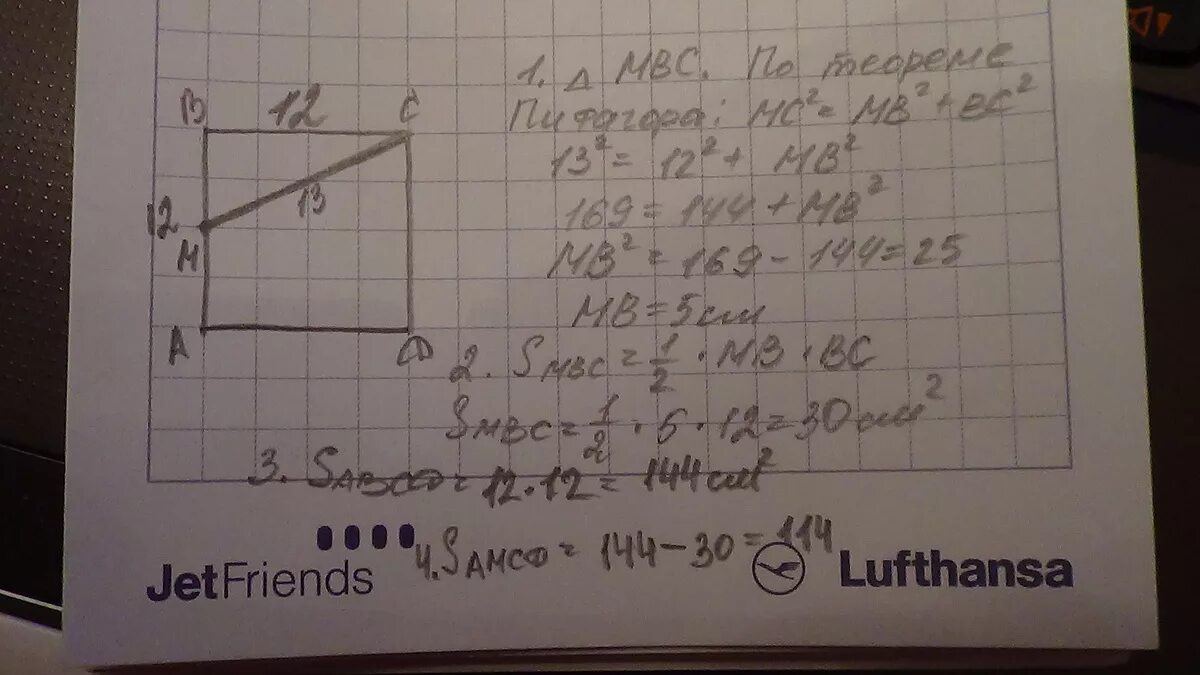 B 12 C
12
13
M
A D
1. △ MBC. По теореме
Питагора: MC² = MB² + BC²
13² = 12² + MB²
169 = 144 + MB²
MB² = 169 - 144 = 25
MB = 5 см
2. SMBC = 1/2 · MB · BC
SMBC = 1/2 · 5 · 12 = 30 см²
3. SABCD = 12 · 12 = 144 см²
4. SAMCD = 144 - 30 = 114
JetFriends
Lufthansa